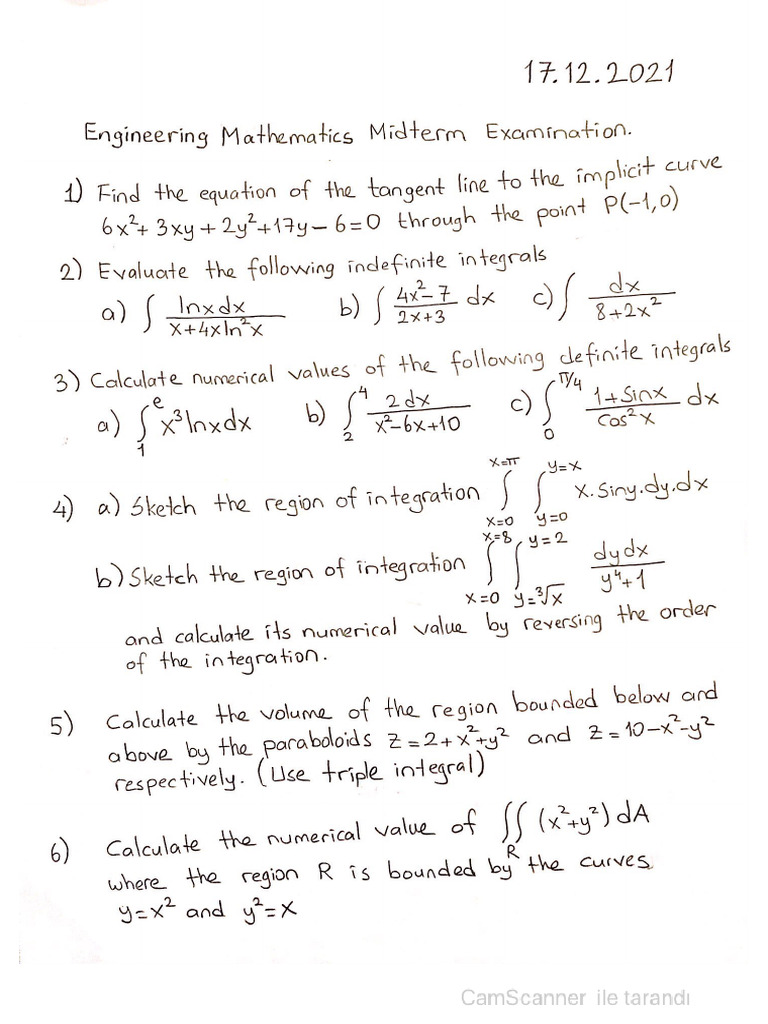 17.12.2021
Engineering Mathematics Midterm Examination.
1) Find the equation of the tangent line to the implicit curve
6x²+3xy+2y²+17y-6=0 through the point P(-1,0)
2) Evaluate the following indefinite integrals
a) ∫ lnxdx / x+4xln²x b) ∫ 4x²-7 / 2x+3 dx c) ∫ dx / 8+2x²
3) Calculate numerical values of the following definite integrals
a) ∫₁ᵉ x³lnxdx b) ∫₂⁴ 2dx / x²-6x+10 c) ∫₀^π/4 1+Sinx / Cos²x dx
4) a) Sketch the region of integration ∫_{x=0}^{x=π} ∫_{y=0}^{y=x} x.Siny.dy.dx
b) Sketch the region of integration ∫_{x=0}^{x=8} ∫_{y=³√x}^{y=2} dydx / y⁴+1
and calculate its numerical value by reversing the order
of the integration.
5) Calculate the volume of the region bounded below and
above by the paraboloids z=2+x²+y² and z=10-x²-y²
respectively. (Use triple integral)
6) Calculate the numerical value of ∫∫_R (x²+y²)dA
where the region R is bounded by the curves
y=x² and y²=x
CamScanner ile tarandı